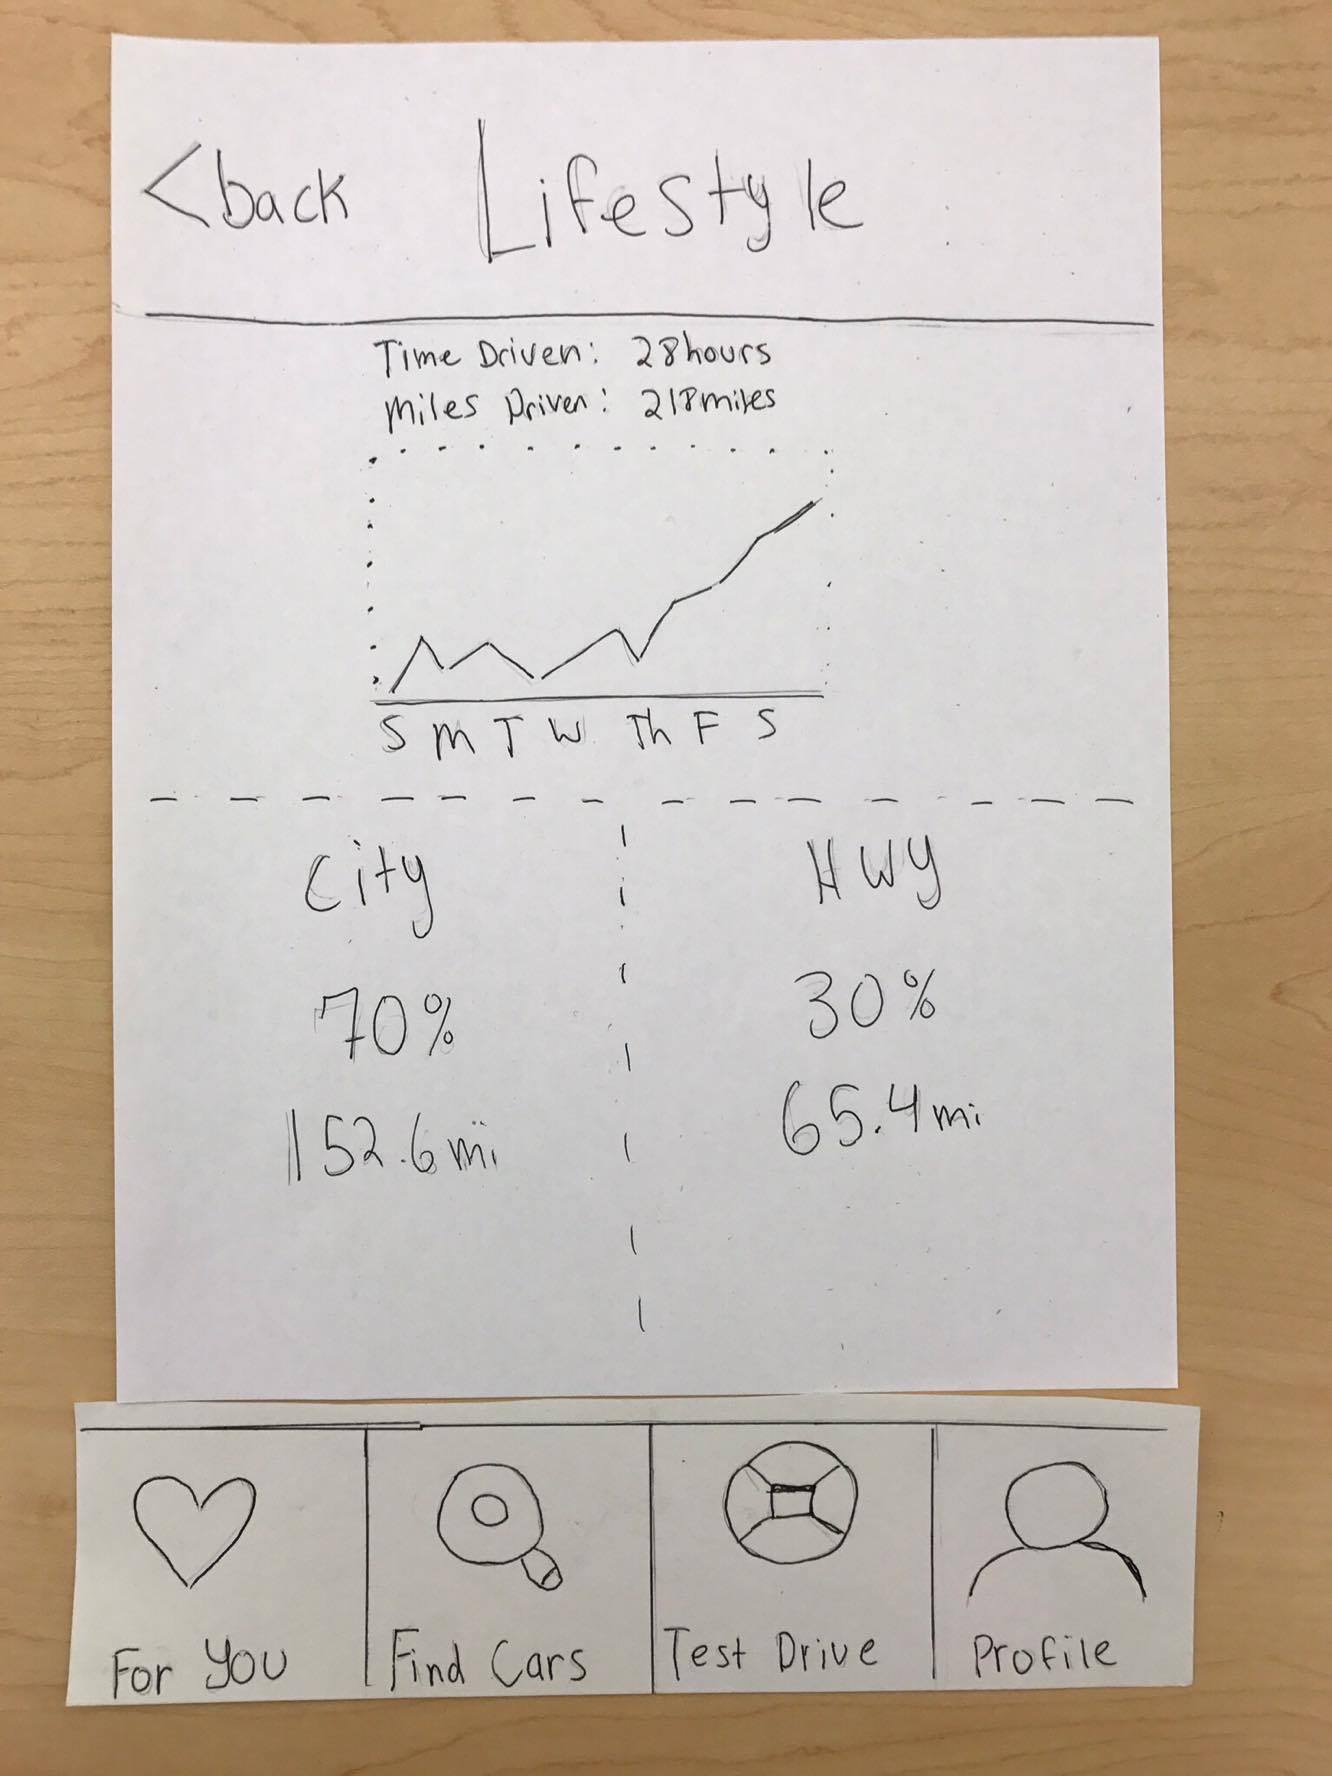 <back Lifestyle
Time Driven: 28hours
Miles Driven: 218miles
S M T W Th F S
City HWY
70% 30%
152.6 mi 65.4 mi
For You Find Cars Test Drive Profile